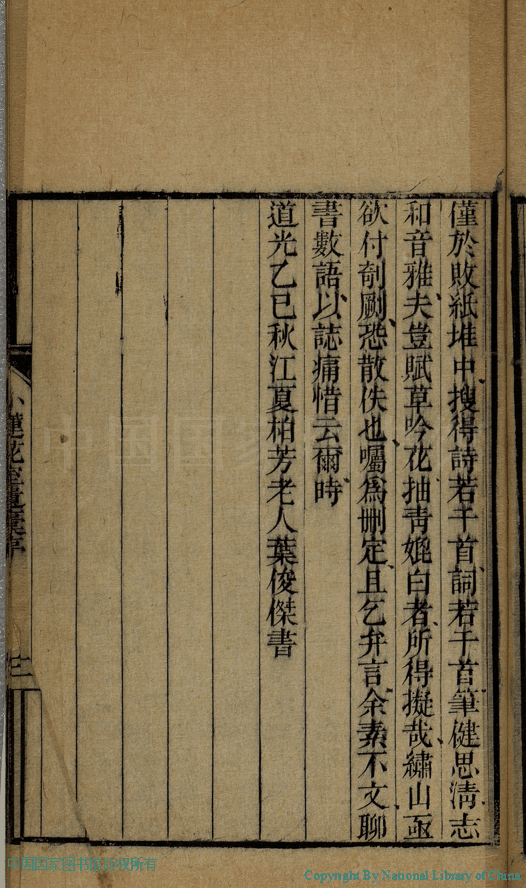 僅於敗紙堆中搜得詩若干首詞若干首筆健思清志
和音雅夫豈賦草吟花抽青媲白者所得擬哉繡山亟
欲付剞劂恐散佚也囑爲刪定且乞弁言余素不文聊
書數語以誌痛惜云爾時
道光乙巳秋江夏柏芳老人葉俊傑書
小蓮花室遺稾序
三
Copyright By National Library of China